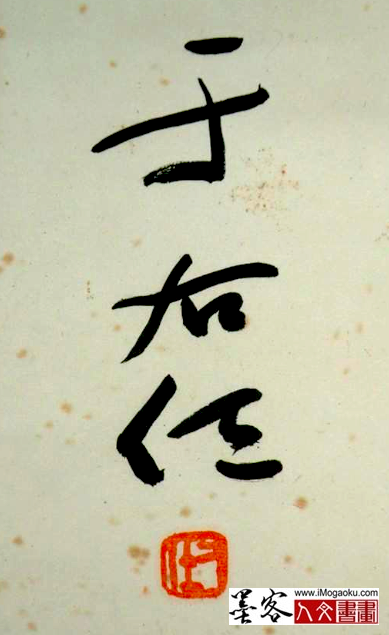 于右任
墨客
www.iMogaoku.com
人文書畫